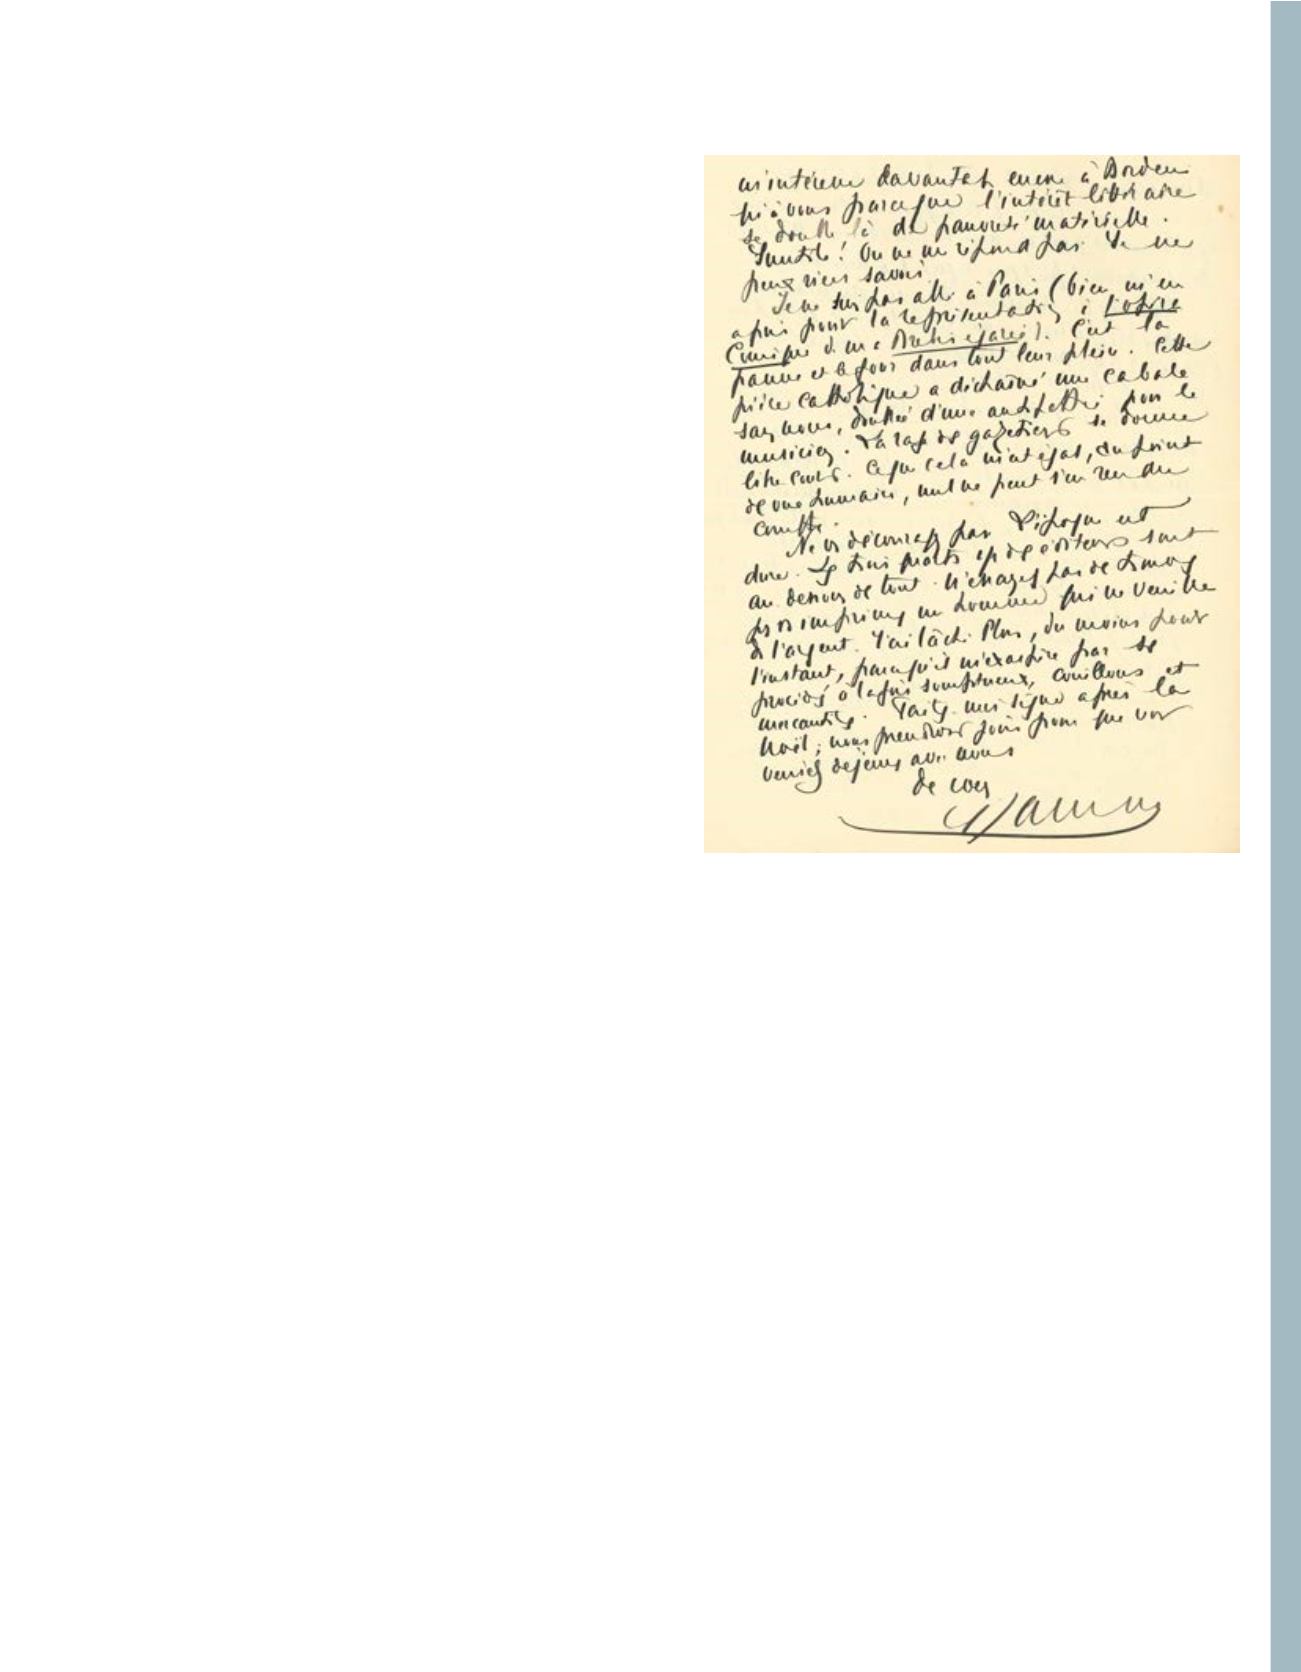 m'intéresse davantage encore à Bordeaux
qu'à vous parce que l'intérêt littéraire
se double là de pauvreté matérielle.
Inutile! On ne me répond pas. Je ne
peux rien savoir
Je ne suis pas allé à Paris (bien m'en
a pris pour la représentation à l'opéra
Comique de ma Brebis égarée). C'est la
panne et le four dans tout leur plein. Cette
pièce catholique a déchaîné une cabale
sans nom, doublée d'une antipathie pour le
musicien. La rage des gazetiers se donne
libre cours. Ce que cela m'est égal, du point
de vue humain, nul ne peut s'en rendre
compte.
Ne vs découragez pas. L'époque est
dure. Les trois quarts des éditeurs sont
au dessous de tout. N'enragez pas de
l'argent. J'ai lâché Plon, du moins pour
l'instant, parce qu'il m'exaspère par ses
procédés à la fois somptueux, couillons et
mercantiles. Faites-moi signe après la
Noël; nous prendrons jour pour que vous
veniez déjeuner avec nous
de coeur
Jammes